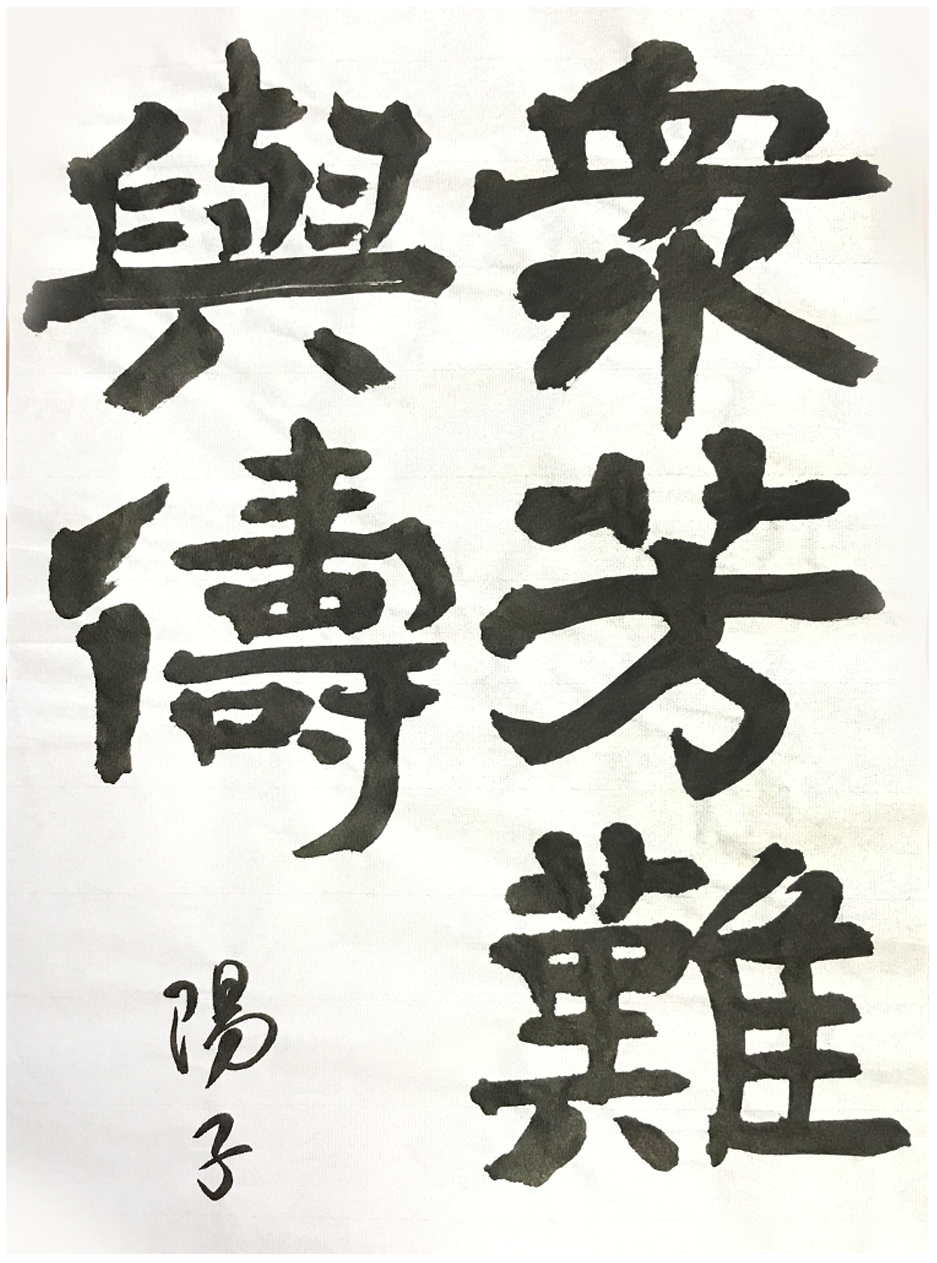 衆芳難
與儔
陽子